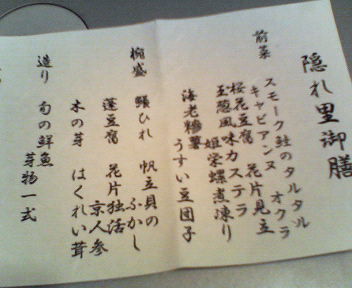 隠れ里御膳
前菜 スモーク鮭のタルタル オクラ
キャビアンヌ 花片見立
桜花豆腐
玉葱風味カステラ
姫栄螺煮凍り
海老糝薯 うすい豆団子
椀盛 鰭ひれ 帆立貝の
ふかし
蓬豆腐 花片独活
京人参
木の芽 はくれい茸
造り 旬の鮮魚
芽物一式